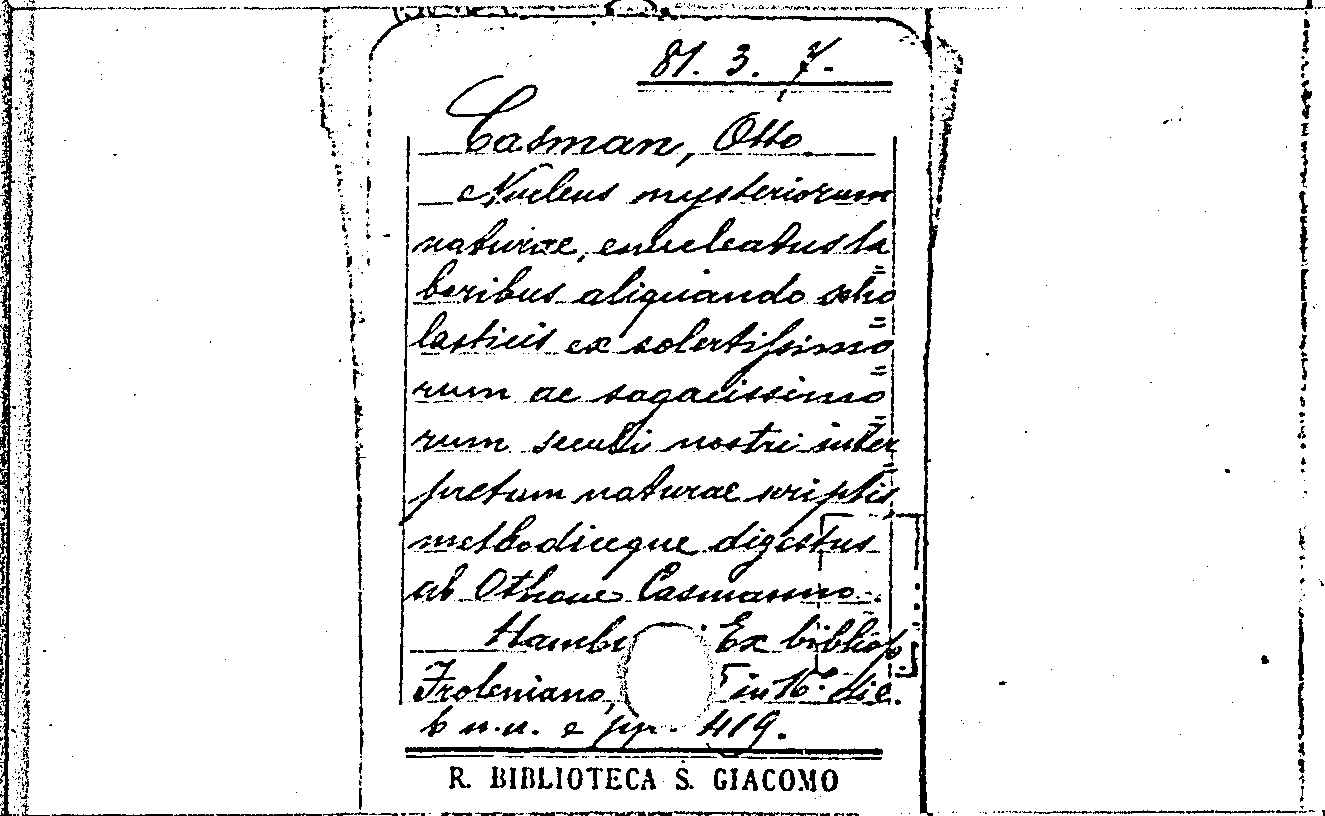 81. 3. 7.
Casman, Otto
Nucleus mysteriorum
naturae, enucleatus la
boribus aliquando scho=
lasticis ex solertissimo=
rum ac sagacissimo=
rum seculi nostri inter=
pretum naturae scriptis=
methodiceque digestus
ab Othone Casmanno.
Hambu Ex bibliop.
Froleniano, 5 in 16.° dic.
6 n.n. e pp. 419.
R. BIBLIOTECA S. GIACOMO